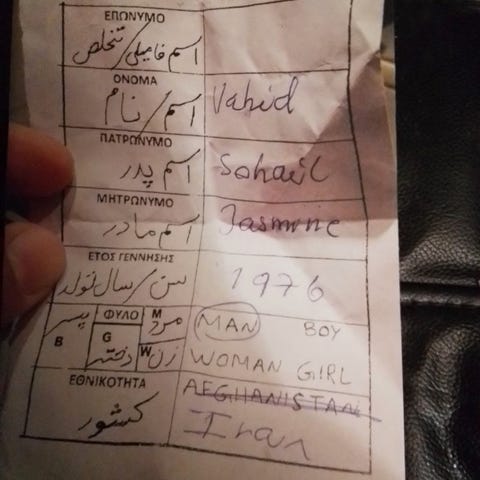 ΕΠΩΝΥΜΟ
اسم فامیلی/تخلص
ΟΝΟΜΑ
اسم/نام
Vahid
ΠΑΤΡΩΝΥΜΟ
اسم پدر
Sohail
ΜΗΤΡΩΝΥΜΟ
اسم مادر
Jasmine
ΕΤΟΣ ΓΕΝΝΗΣΗΣ
سن/سال تولد
1976
پسر
B
ΦΥΛΟ
G
دختر
M
مرد
W
زن
MAN BOY
WOMAN GIRL
ΕΘΝΙΚΟΤΗΤΑ
کشور
AFGHANISTAN
Iran